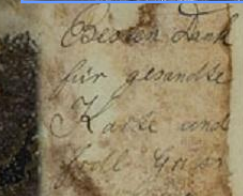 Besten Dank
für gesandte
Karte und
froll. Gruss